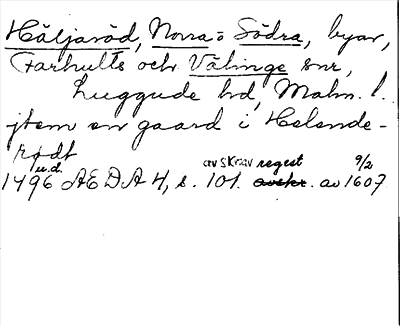 Häljaröd, Norra o Södra, byar,
Farhults och Välinge snr,
Luggude hd, Malm. l.
jtem en gaard i Helende-
rødt
u.d. av skrav regest 9/2
1496 AEDA 4, s. 101. avskr. av 1607